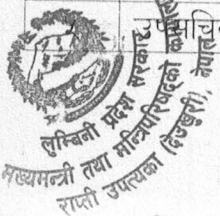 उपसचिव
लुम्बिनी प्रदेश सरकार
मुख्यमन्त्री तथा मन्त्रिपरिषद्को कार्यालय
राप्ती उपत्यका (देउखुरी), नेपाल